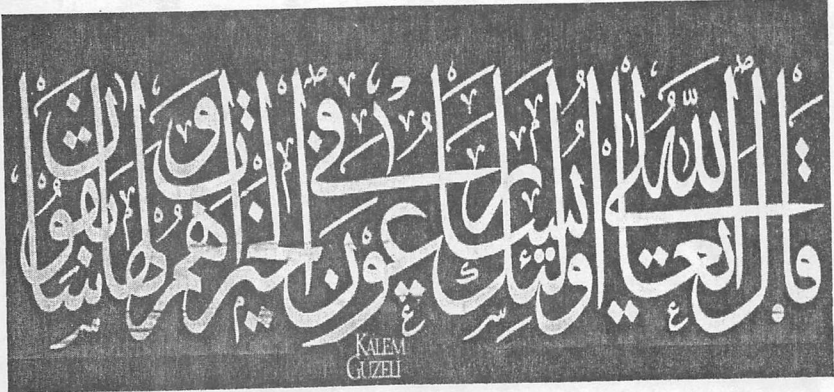 قال الله تعالى اولئك يسارعون في الخيرات وهم لها سابقون
KALEM
GÜZELİ